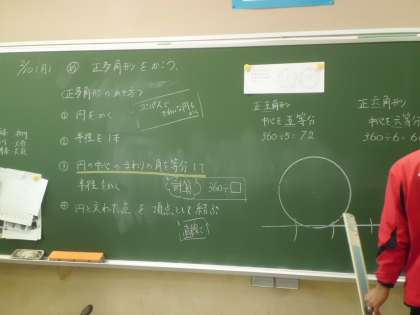 2/10(月) め 正多角形をかこう。
<正多角形のかき方>
① 円をかく
コンパスで
きれいな円を
② 半径を1本
③ 円の中心のまわりの角を等分して
半径をかく
計算 360÷□
④ 円と交わった点を頂点として結ぶ
直線
正五角形
中心を五等分
360÷5=72
正六角形
中心を六等分
360÷6=6